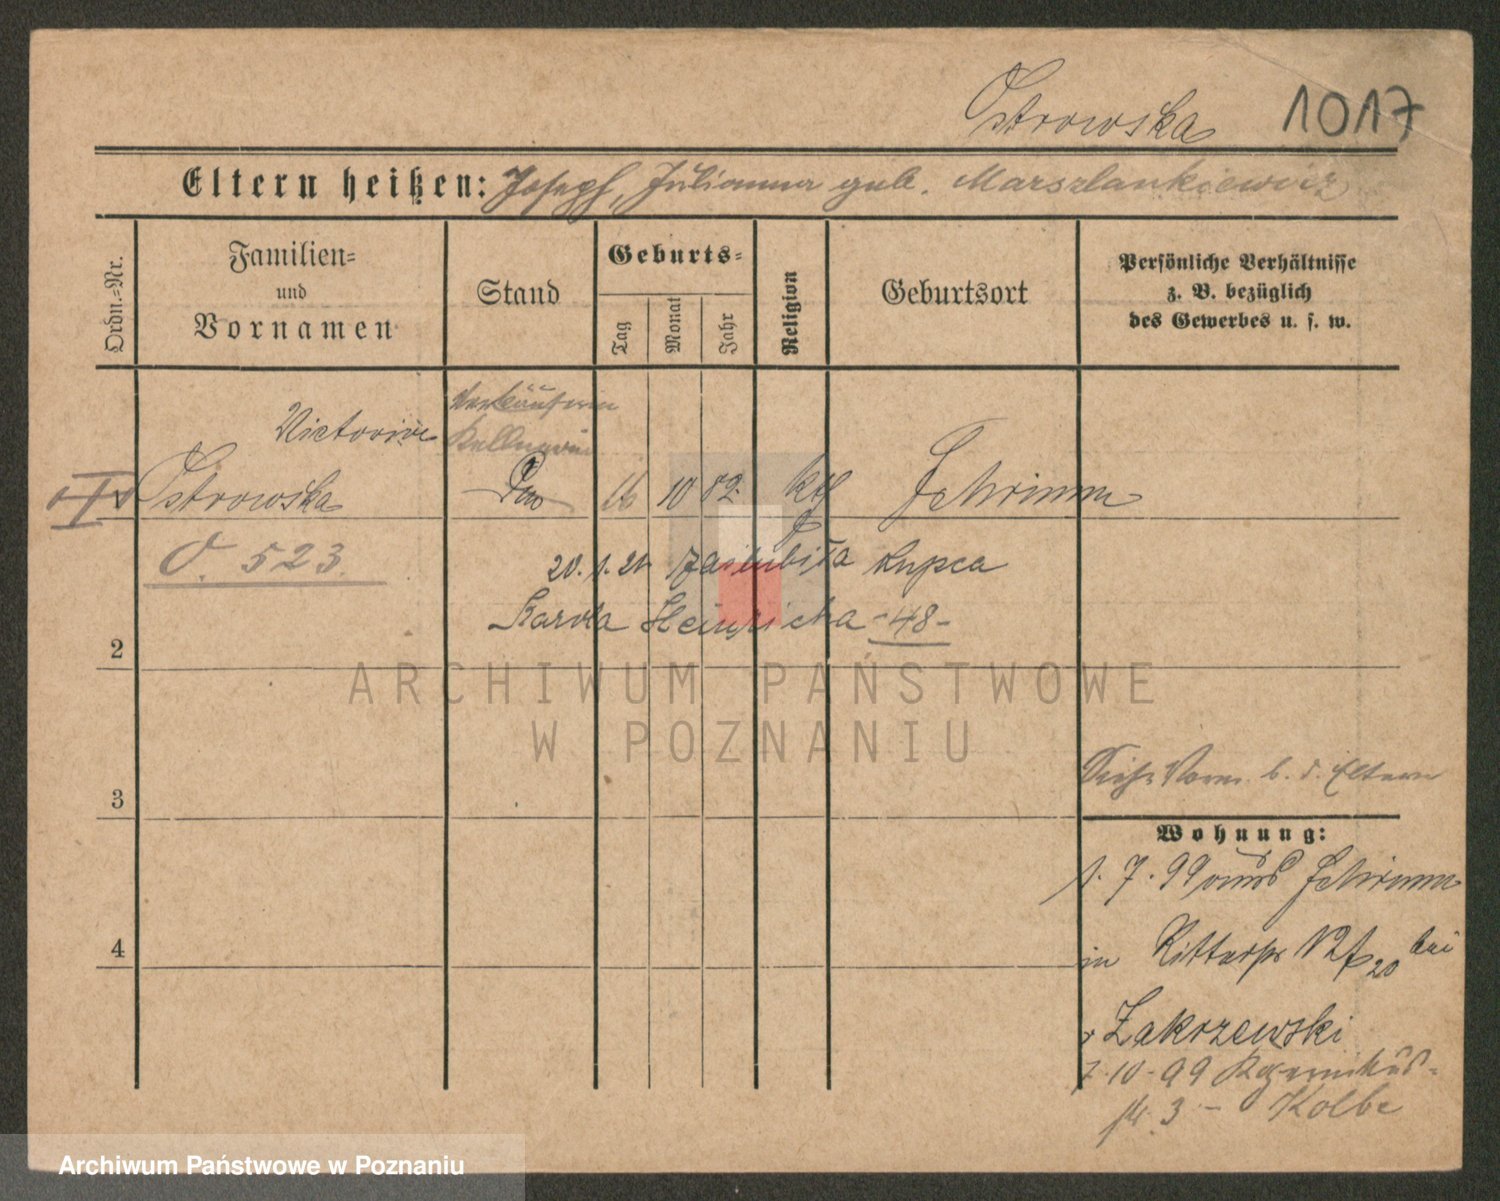 Ostrowska 1017
Eltern heißen: Joseph, Julianna geb. Marszlankiewicz
Ordn.-Nr.
Familien-
und
Vornamen
Stand
Geburts-
Tag
Monat
Jahr
Religion
Geburtsort
Persönliche Verhältnisse
z. B. bezüglich
des Gewerbes u. s. w.
Verkäuferin
Victorine Kellnerin
Ostrowska 16 10 82. kth Schrimm
O. 523.
20. 1. 21. zaślubiła kupca
Karola Heinricha -48-
2
ARCHIWUM PAŃSTWOWE
W POZNANIU
Siehe Vorm. b. d. Eltern
3
Wohnung:
1. 7. 99 Schrimm
4
in Ritterstr 20 bei
v Zakrzewski
7.10.99
3 - Kolbe
Archiwum Państwowe w Poznaniu